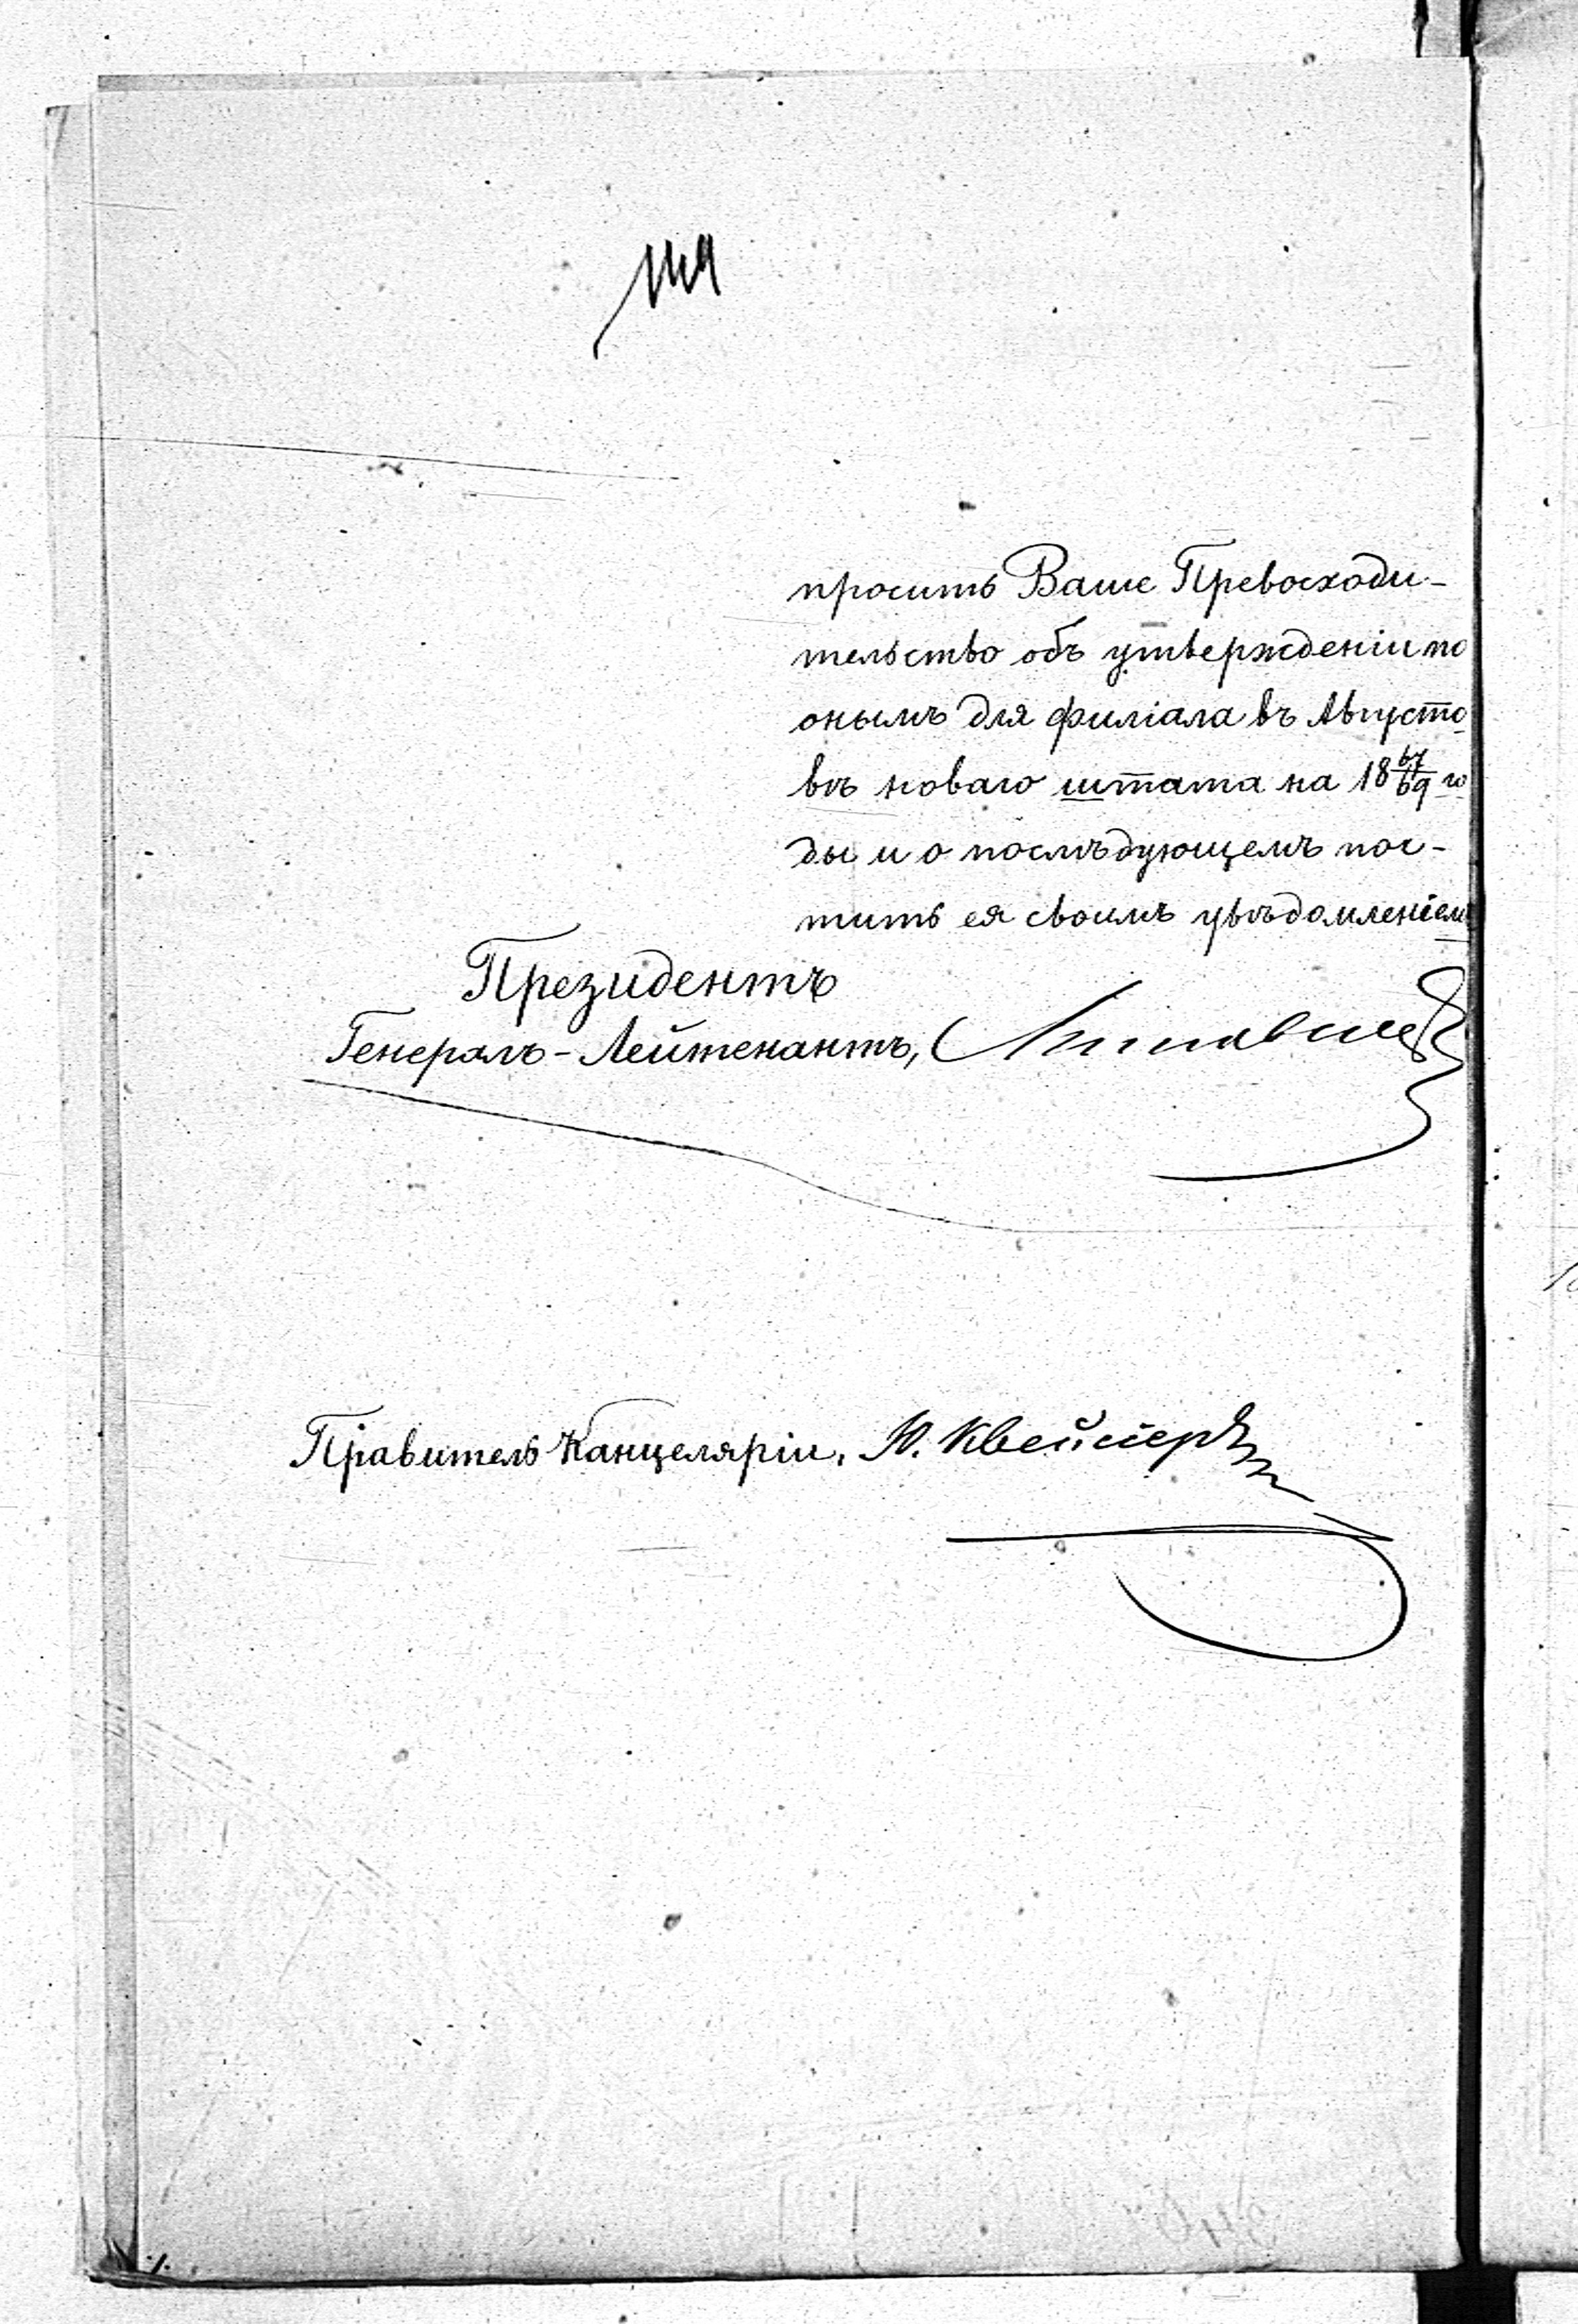 просить Ваше Превосходи-
тельство объ утвержденіи по
онымъ для филіала въ Августо
вѣ новаго штата на 18 67/69 го
ды и о послѣдующемъ пос-
тить ея своимъ увѣдомленіем
Президентъ
Генералъ-Лейтенантъ,
Правитель Канцеляріи, Ю.